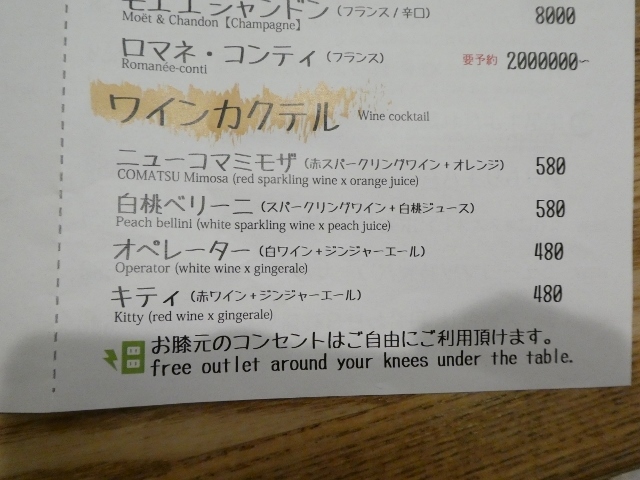 モエエシャンドン（フランス / 辛口） 8000
Moët & Chandon【Champagne】
ロマネ・コンティ（フランス） 要予約 2000000～
Romanée-conti
ワインカクテル Wine cocktail
ニューコマミモザ（赤スパークリングワイン＋オレンジ） 580
COMATSU Mimosa (red sparkling wine x orange juice)
白桃ベリーニ（スパークリングワイン＋白桃ジュース） 580
Peach bellini (white sparkling wine x peach juice)
オペレーター（白ワイン＋ジンジャーエール） 480
Operator (white wine x gingerale)
キティ（赤ワイン＋ジンジャーエール） 480
Kitty (red wine x gingerale)
お膝元のコンセントはご自由にご利用頂けます。
free outlet around your knees under the table.